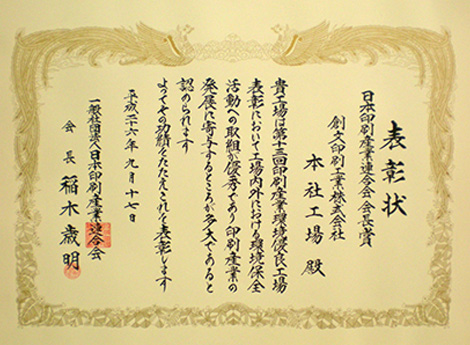 表彰状
日本印刷産業連合会 会長賞
創文印刷工業株式会社
本社工場 殿
貴工場は第十三回印刷産業環境優良工場
表彰において工場内外における環境保全
活動への取組が優秀であり印刷産業の
発展に寄与するところが多大であると
認められます
よってその功績をたたえこれを表彰します
平成二十六年九月十七日
一般社団法人日本印刷産業連合会
会長 稲木歳明